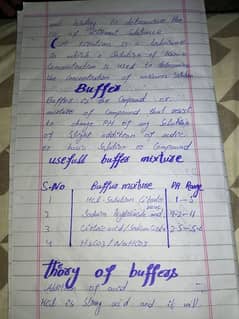 and helping to determine the
of different substance
(A titration is a
in which a solution of known
concentration is used to determine
the concentration of unknown solution
Buffer
Buffer is the compound or
mixture of compound that resist
to change PH of any solution
of slight addition of acidic
or basic solution or compound
usefull buffer mixture
S.No Buffer mixture PH Range
1 HCl Solution Citrate 1-5
2 Sodium
3 Citric acid/Sodium Citrate 2.5-5.6
4 H2CO3/NaHCO3
thiory of buffers
Addition of acid -
HCl is Strong acid and it will